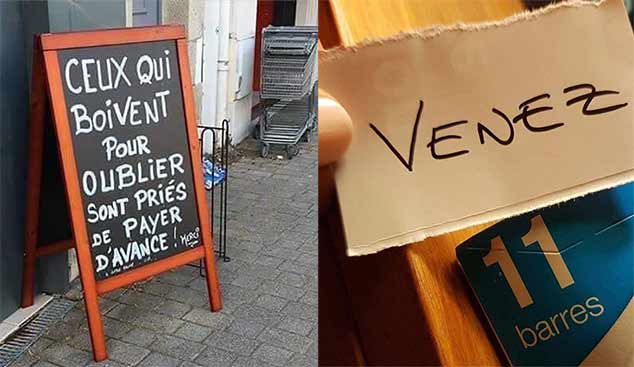 CEUX QUI
BOIVENT
POUR
OUBLIER
SONT PRIÉS
DE PAYER
D'AVANCE! MERCI
VENEZ
11
barres